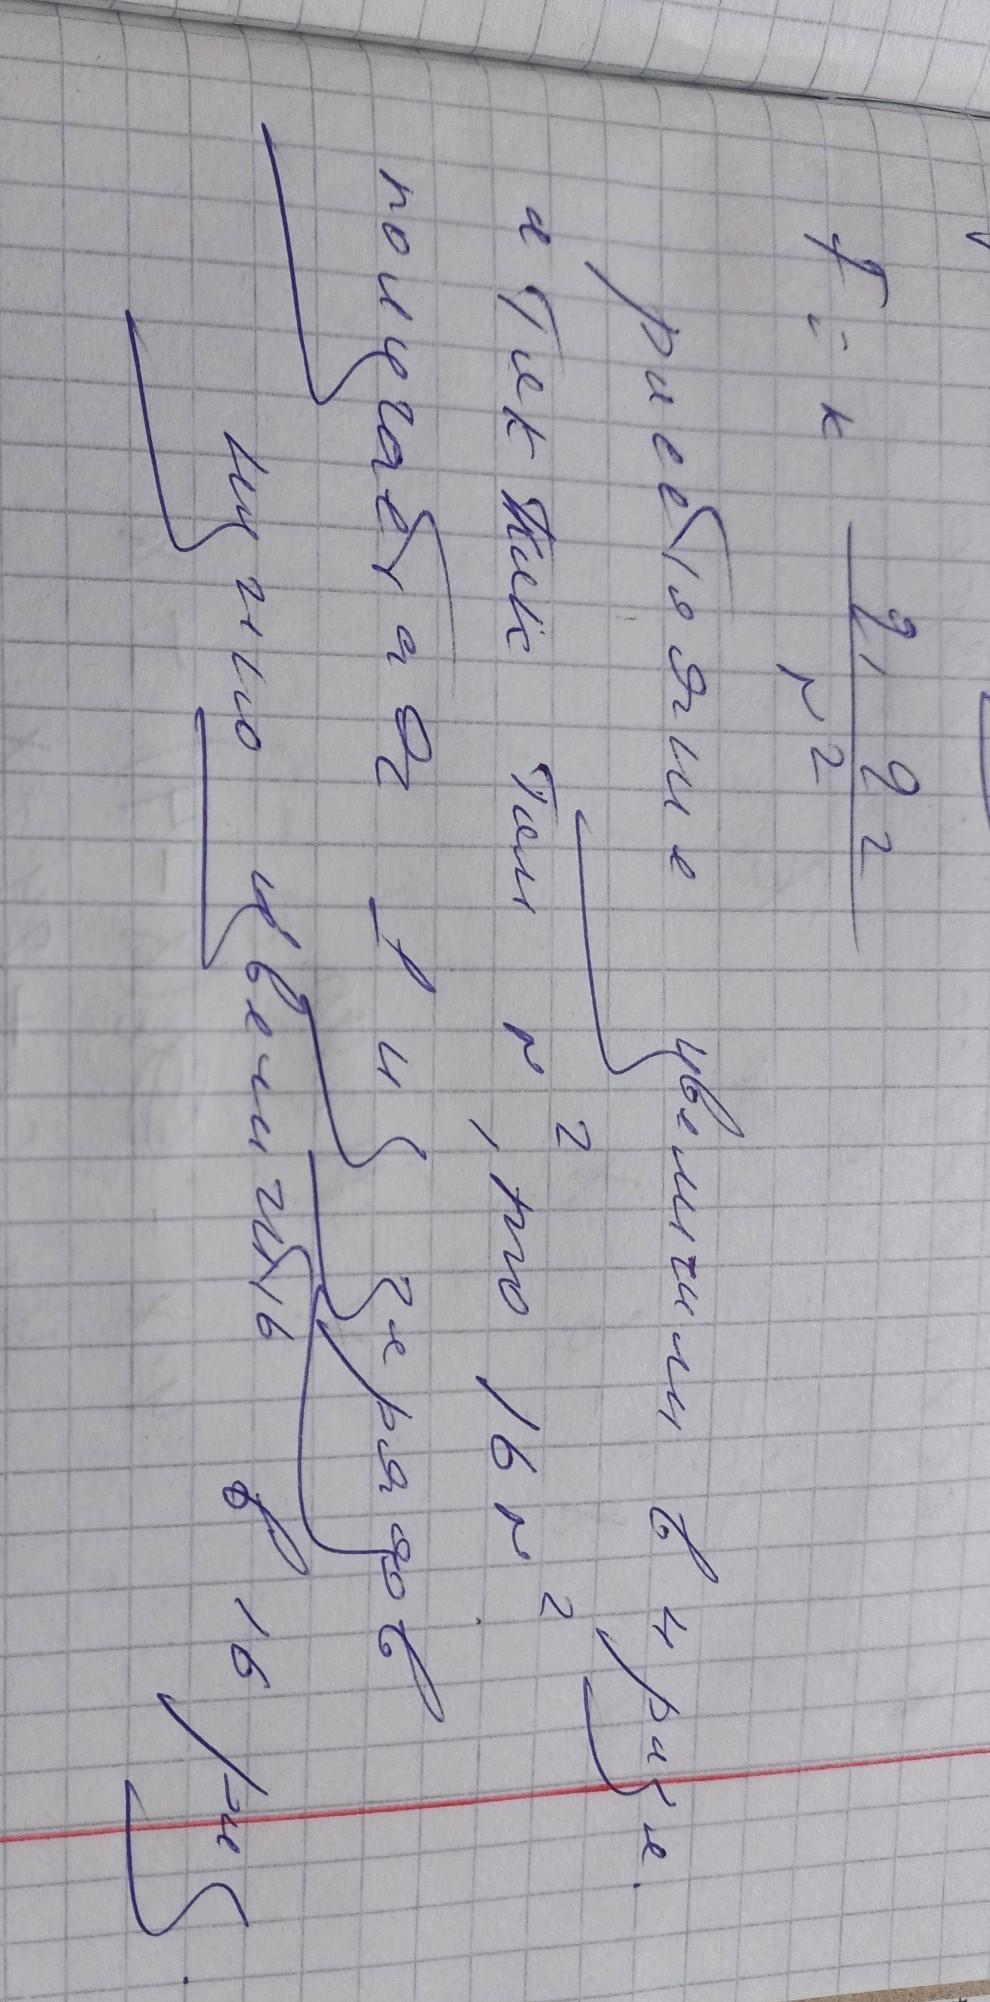 F = k q₁ q₂ / r²
расстояние увеличили в 4 раза.
а так как там r², то 16 r².
получается 1 из зарядов
нужно увеличить в 16 раз.